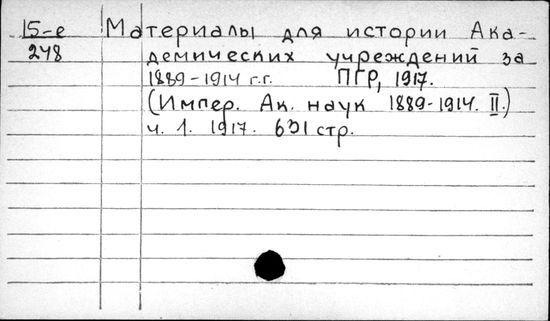 15-е Материалы для истории Ака-
248 демических учреждений за
1889-1914 г.г. ПГР, 1917.
(Импер. Ак. наук 1889-1914. II.)
ч. 1. 1917. 631 стр.